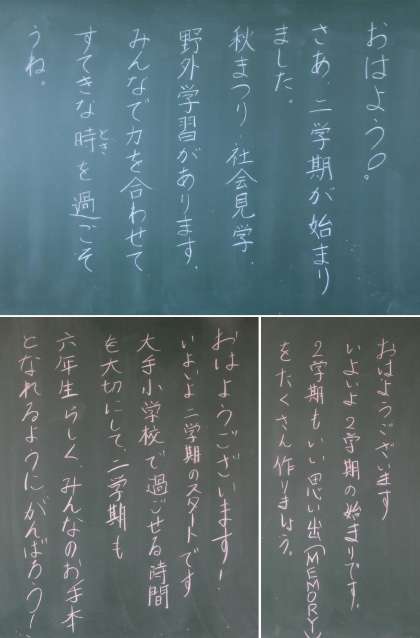 おはよう。
さあ、二学期が始まり
ました。
秋まつり、社会見学、
野外学習があります。
みんなで力を合わせて
すてきな時を過ごそ
とき
うね。
おはようございます!
いよいよ二学期のスタートです
大手小学校で過ごせる時間
を大切にして、二学期も
六年生らしく、みんなのお手本
となれるようにがんばろう!
おはようございます
いよいよ2学期の始まりです。
2学期もいい思い出(MEMORY)
をたくさん作りましょう。